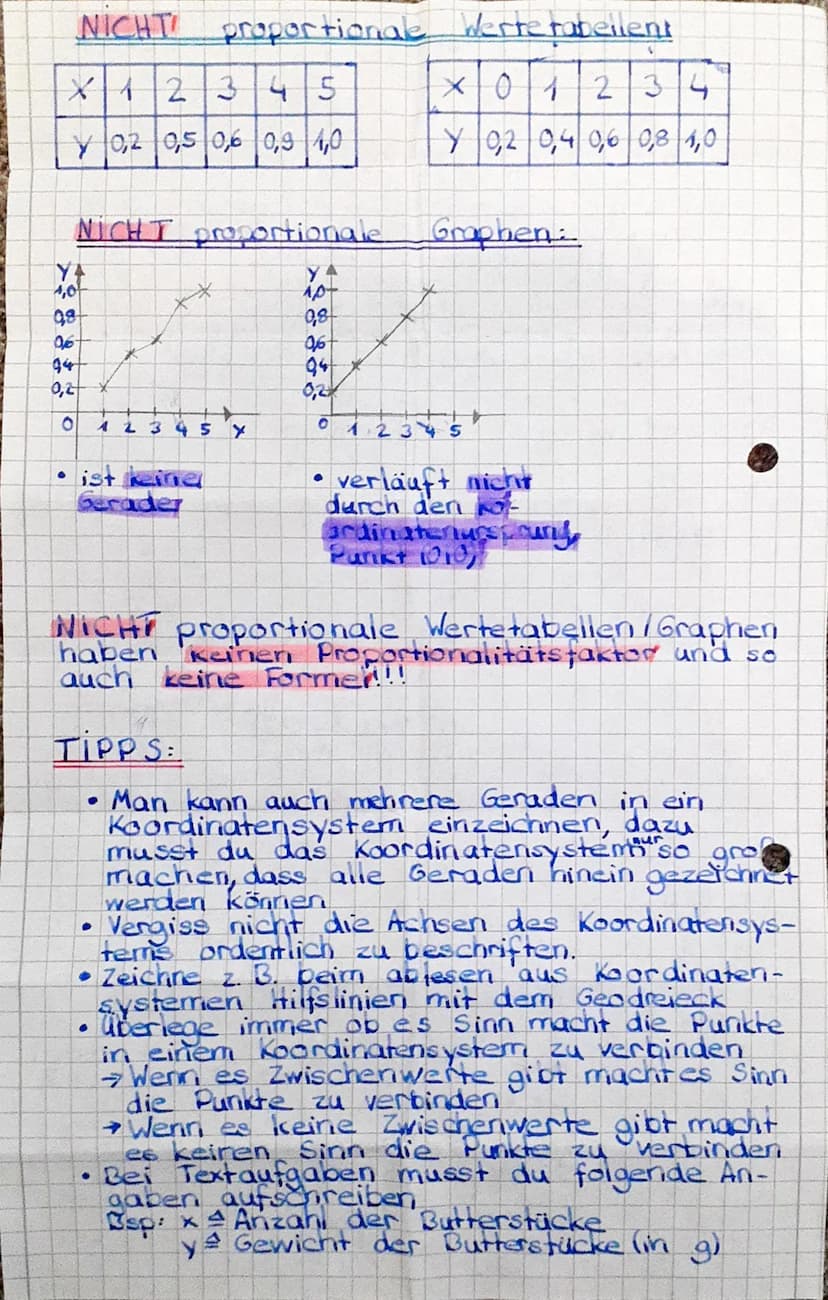 NICHT proportionale Wertetabellen:
X 1 2 3 4 5
Y 0,2 0,5 0,6 0,9 1,0
X 0 1 2 3 4
Y 0,2 0,4 0,6 0,8 1,0
NICHT proportionale Graphen:
Y
1,0
0,8
0,6
0,4
0,2
0 1 2 3 4 5 X
Y
1,0
0,8
0,6
0,4
0,2
0 1 2 3 4 5
• ist keine
Gerade
• verläuft nicht
durch den Ko-
ordinatenursprung,
Punkt (0|0)
NICHT proportionale Wertetabellen/Graphen
haben keinen Proportionalitätsfaktor und so
auch keine Formel!!!
TIPPS:
• Man kann auch mehrere Geraden in ein
Koordinatensystem einzeichnen, dazu
musst du das Koordinatensystem nur so groß
machen, dass alle Geraden hinein gezeichnet
werden können
• Vergiss nicht die Achsen des Koordinatensys-
tems ordentlich zu beschriften.
• Zeichne z. B. beim ablesen aus Koordinaten-
systemen Hilfslinien mit dem Geodreieck
• Überlege immer ob es Sinn macht die Punkte
in einem Koordinatensystem zu verbinden
→ Wenn es Zwischenwerte gibt macht es Sinn
die Punkte zu verbinden
→ Wenn es keine Zwischenwerte gibt macht
es keinen Sinn die Punkte zu verbinden
• Bei Textaufgaben musst du folgende An-
gaben aufschreiben
Bsp: x ≙ Anzahl der Butterstücke
y ≙ Gewicht der Butterstücke (in g)